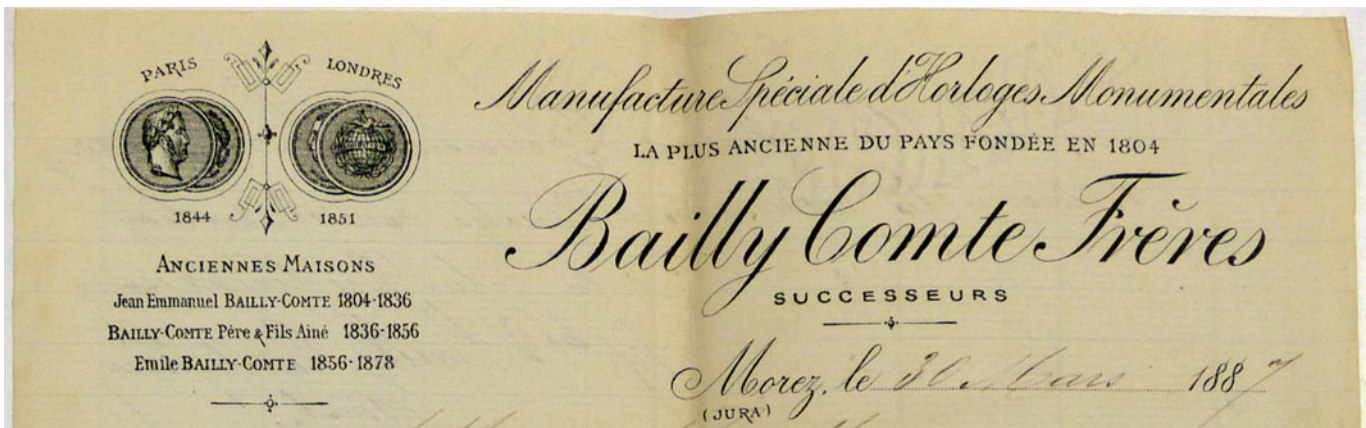 PARIS LONDRES
1844 1851
ANCIENNES MAISONS
Jean Emmanuel BAILLY-COMTE 1804-1836
BAILLY-COMTE Père & Fils Ainé 1836-1856
Emile BAILLY-COMTE 1856-1878
Manufacture Spéciale d'Horloges Monumentales
LA PLUS ANCIENNE DU PAYS FONDÉE EN 1804
Bailly Comte Frères
SUCCESSEURS
Morez, le 30 Mars 1887
(JURA)